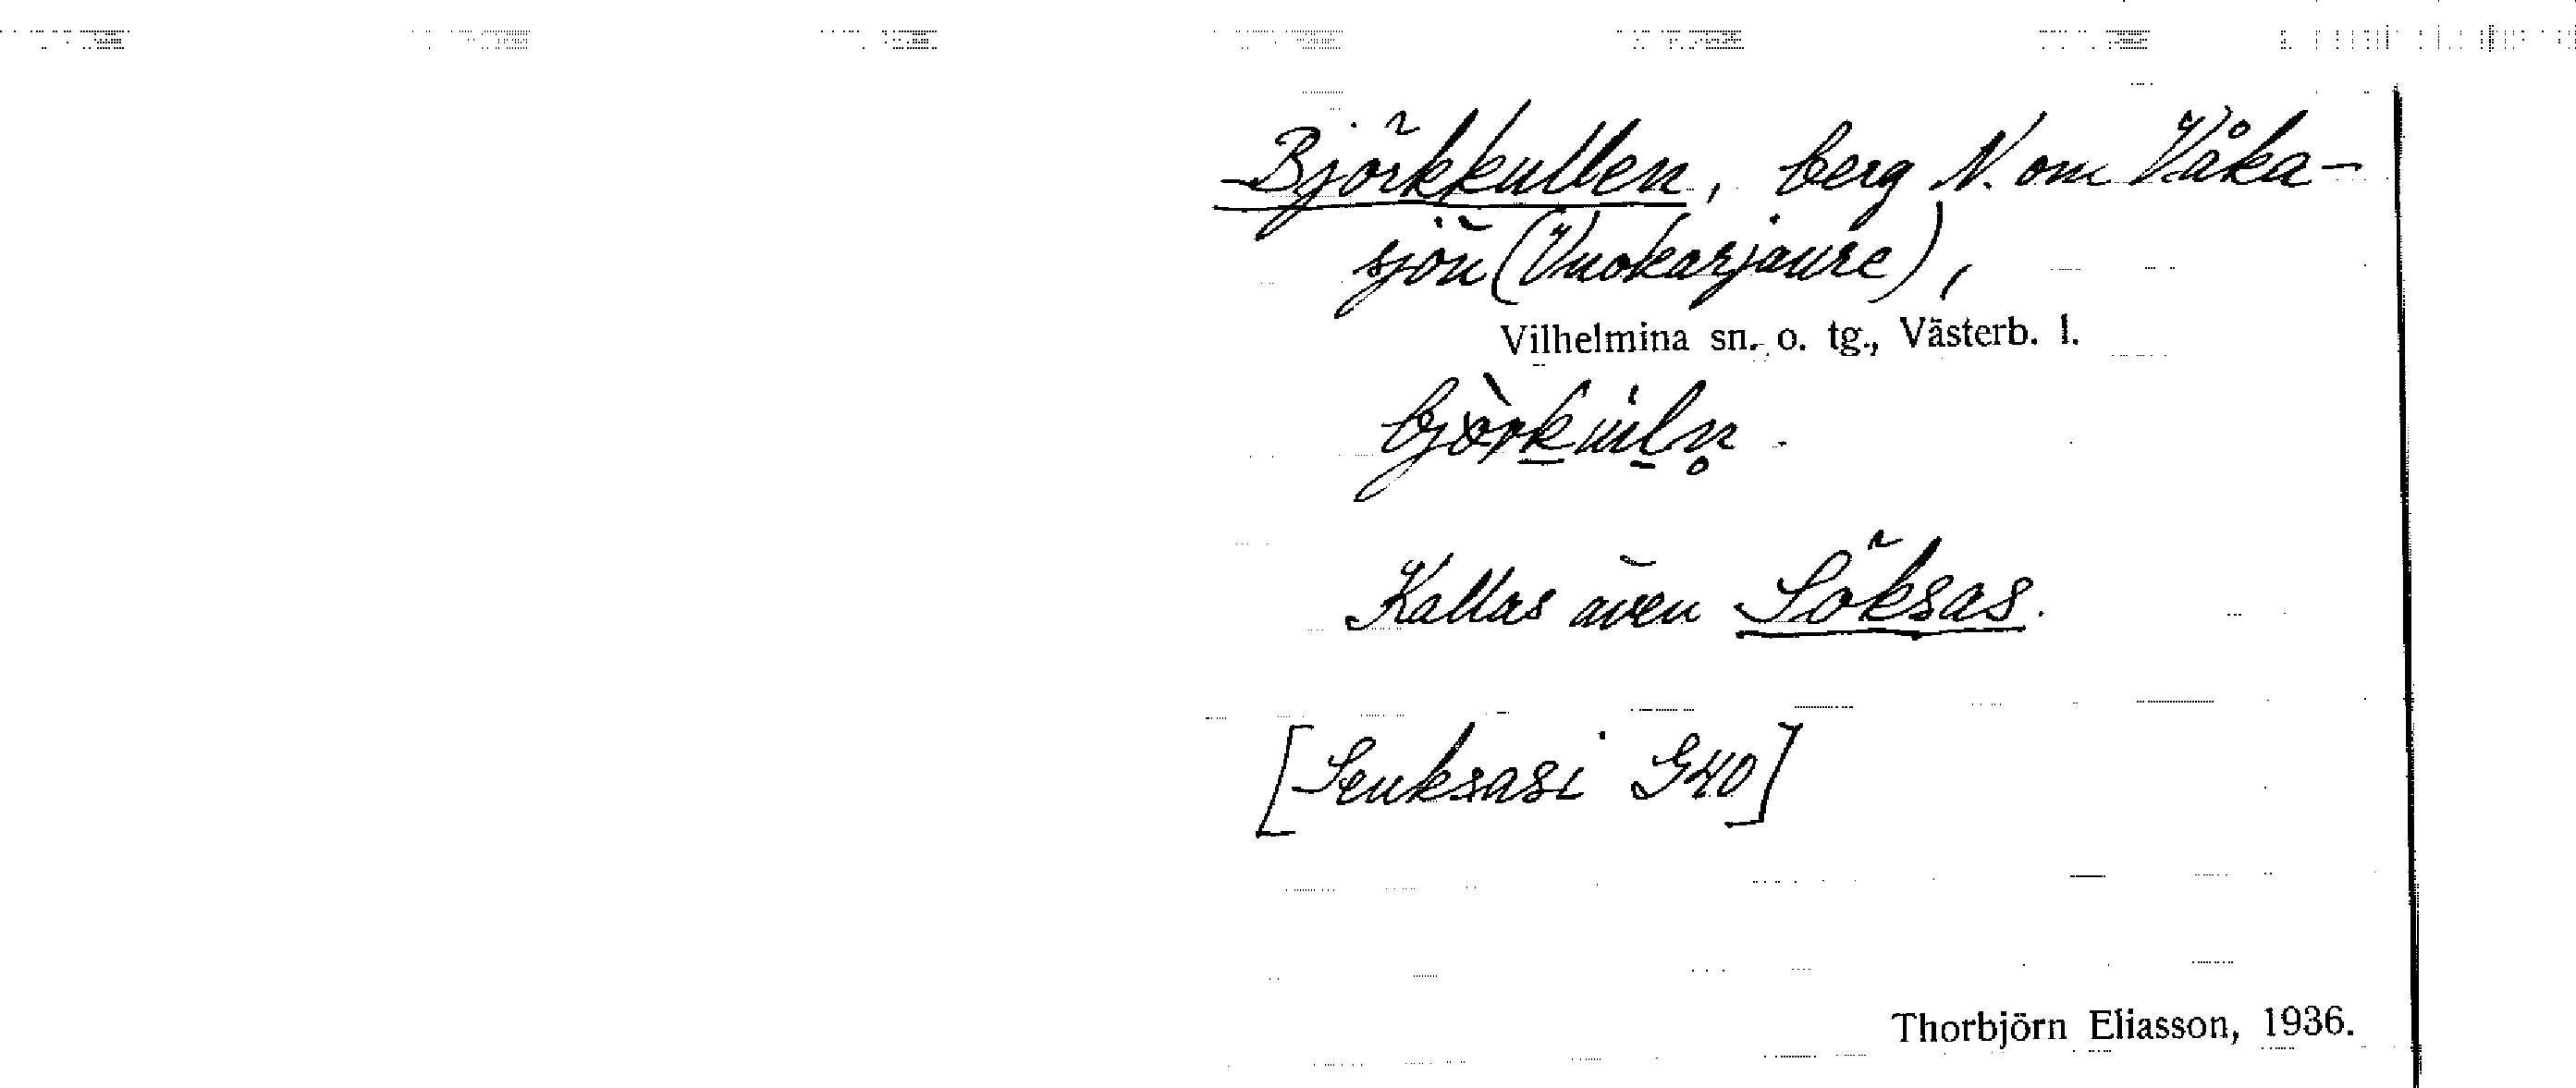 Björkkullen, berg N. om Våka-
sjön (Vuokarjaure),
Vilhelmina sn. o. tg., Västerb. l.
Kallas även Söksas.
[Seuksasi G40]
Thorbjörn Eliasson, 1936.